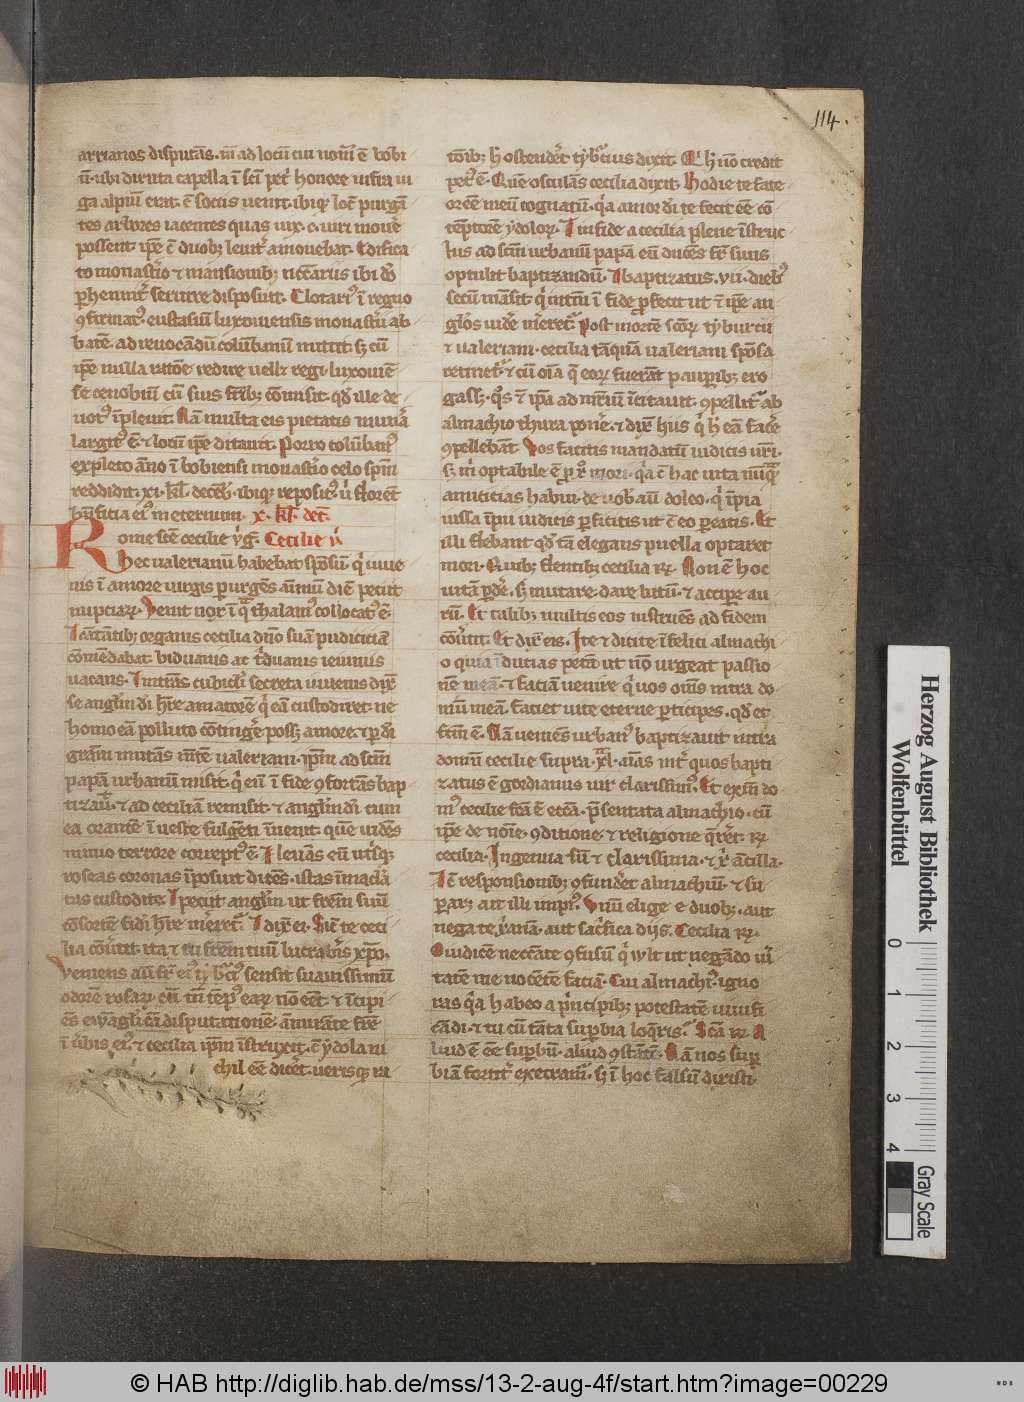 114.
arrianos disputās. īn̄ ad locū cui nom̄ ē bobi
ū. ubi diruta capella ī sc̄i petr̓ honore
ga alpiū erat. ē socius uenit. ibiqȝ loc̄ purgā
tes arbores iacentes quas uix .c. uiri mouē
possent. ip̄e c̄ duobȝ leuit̓ amouebat. Edifica
to monast̓io ⁊ mansionibȝ
seruire disposuit. Clotari⁹ ī regno
ꝯfirmat⁹. eustasiū luxouiensis monast̓ii ab
batē. ad reuocādū colūbanū mittit. sȝ cū
ip̄e nulla rōne redire uellȝ regi. luxouiē
se cenobiū cū suis fr̄ibȝ cōmisit. qd̓ ille de
uot⁹ īpleuit. Nā multa eis pietatis
largit⁹ ē. ⁊ locū ip̄e ditauit. Porro colūban⁹
expleto āno ī bobiensi monast̓io celo spm̄
reddidit. xi. kl̄. decēb̓. ibiqȝ reposit⁹
bn̄ficia ei⁹ meterium. x. kl̄. dec̄.
Rome sc̄e cecilie ỽg̓. Cecilie ỽ
hec ualerianū habebat spōsū. q̓ iuue
nis ī amore uirgīs
nuptiaȝ. Uenit nox ī q̄ thalam⁹ collocat⁹ ē.
Cātātibȝ organis cecilia dn̄o suā pudiciciā
cōmēdabat. biduanis ac t̓duanis ieiuniis
uacans. Int̓ās cubic̄li secreta iuuenis dix̄
se anglm̄ di h̄re amatorē q̓ eā custodiret. ne
homo eā polluto cōtinge᷑e possȝ amore. ⁊ ꝑ di
gr̄am mutās m̄tē ualeriani. ip̄m ad sc̄m
papam urbanū misit. q̓ eū ī fide ꝯfortās bap
tizauit. ⁊ ad ceciliā remisit. ⁊ anglm̄ di cum
ea orantē ī ueste fulgēti īuenit. quē uidēs
nimio terrore corrept⁹ ē. Eleuās eū utrūqȝ
roseas coronas īposuit dicēs. istas īmacła
tas custodite. Ipetiit anglm̄ ut fr̄em suū
cōsortē fidei h̄re mer̓et̓. Idix̄ ei. Sic̄ te ceci
lia cōu̓tit. ita ⁊ tu fr̄em tuū lucrab̓is xp̄o.
Ueniens aū fr̄ ei⁹ tib̓ci⁹ sensit suauissimū
odorē rosaȝ. cū īn̄ temp⁹ eaȝ nō eēt. ⁊ īcipi
ēs ew̄aglī cā disputationē. āmirāte fr̄e
ī u̓bis ei⁹. ⁊ cecilia ip̄m īstruxit. c̄ ydola ni
chil eē dicēt. uerisqȝ ra
tōibȝ h̄ ostendēt tyb̓cius dixit. Q̓ h̄ nō credit
pec⁹ ē. Quē osculās cecilia dixit. Hodie te fate
or eē meū cognatū. q̓a amor di te fecit eē cō
tēptorē ydoloȝ. Tiu̓ fide a cecilia plene īstruc
tus ad sc̄m urbanū papā eū ducēs fr̄ suus
optulit baptizandū. Ibaptizatus. vii. dieb⁹
secū māsit. q̓ intīn̄ ī fide ꝑfecit ut ⁊ ip̄e an
glos uidēe mer̓et̓. Post mortē sc̄oȝ tyburcii
⁊ ualeriani. cecilia tāquā ualeriani spōsa
retinet̓. ⁊ cū oīa q̄ eoȝ fuerāt pauꝑibȝ ero
gassȝ. q̓s ⁊ ip̄a ad m̄riū īcitauit. ꝯpellit̓ ab
almachio thura pon̄e. ⁊ dix̄ hiis q̓ h̄ eā face᷑
ꝯpellebāt. Uos facitis mandatū iudicis ur̄i.
sȝ m̓ optabile ē ꝑ xp̄o mori. q̓a ē hac uita nūq̄
amicicias habui. de uobis aū doleo. q̓ īpia
iussa īpii iudicis ꝑficitis ut ē eo ꝑeatis. Et
illi flebant qd̓ tā elegans puella optaret
mori. Quibȝ flentibȝ cecilia rȝ. Non ē hoc
uitā ꝑd̓e. sȝ mutare. dare lutū. ⁊ accipere au
rū. Et talibȝ multis eos instruēs ad fidem
cōu̓tit. Et dix̄ eis. Ite ⁊ dicite ī felici almachi
o quia īducias petāt ut nō urgeat passio
nē meā. ⁊ faciā uenire q̓ uos om̄s intra do
mū meā. faciet uite eterne ꝑticipes. qd̓ et
fc̄m ē. Nā ueniēs urban⁹ baptizauit intra
domū cecilie supra .xl. aīas. int̓ quos bapti
zatus ē gordianus uir clarissim⁹. Et exīn do
m⁹ cecilie fc̄a ē ecc̄a. p̄sentata almachio. cū
ip̄e de noīe. ꝯditione. ⁊ religione q̄ret̓. rȝ
cecilia. Ingenua sū ⁊ clarissima. ⁊ xp̄i ācilla.
Tc̄ responsionibȝ ꝯfunde᷑t almachiū. ⁊ su
ꝑaȝ. ait illi impi⁹. Unū elige e duobȝ. aut
nega te xp̄ianā. aut sac̓fica diis. Cecilia rȝ.
O iudicē necc̄ate ꝯfusū q̓ wlt ut negādo ui̓
tatē me nocētē faciā. Cui almachi⁹. igno
ras q̓a habeo a p̓ncipibȝ potestatē uiuifi
cādi. ⁊ tu cū tāta suꝑbia loq̓ris. Sc̄a rȝ. A
liud ē eē suꝑbū. aliud ꝯstātē. Nā nos suꝑ
biā fortit̓ execram̓. sȝ ī hoc falsū dixisti.
Herzog August Bibliothek
Wolfenbüttel
0 1 2 3 4
Gray Scale
© HAB http://diglib.hab.de/mss/13-2-aug-4f/start.htm?image=00229
WDB